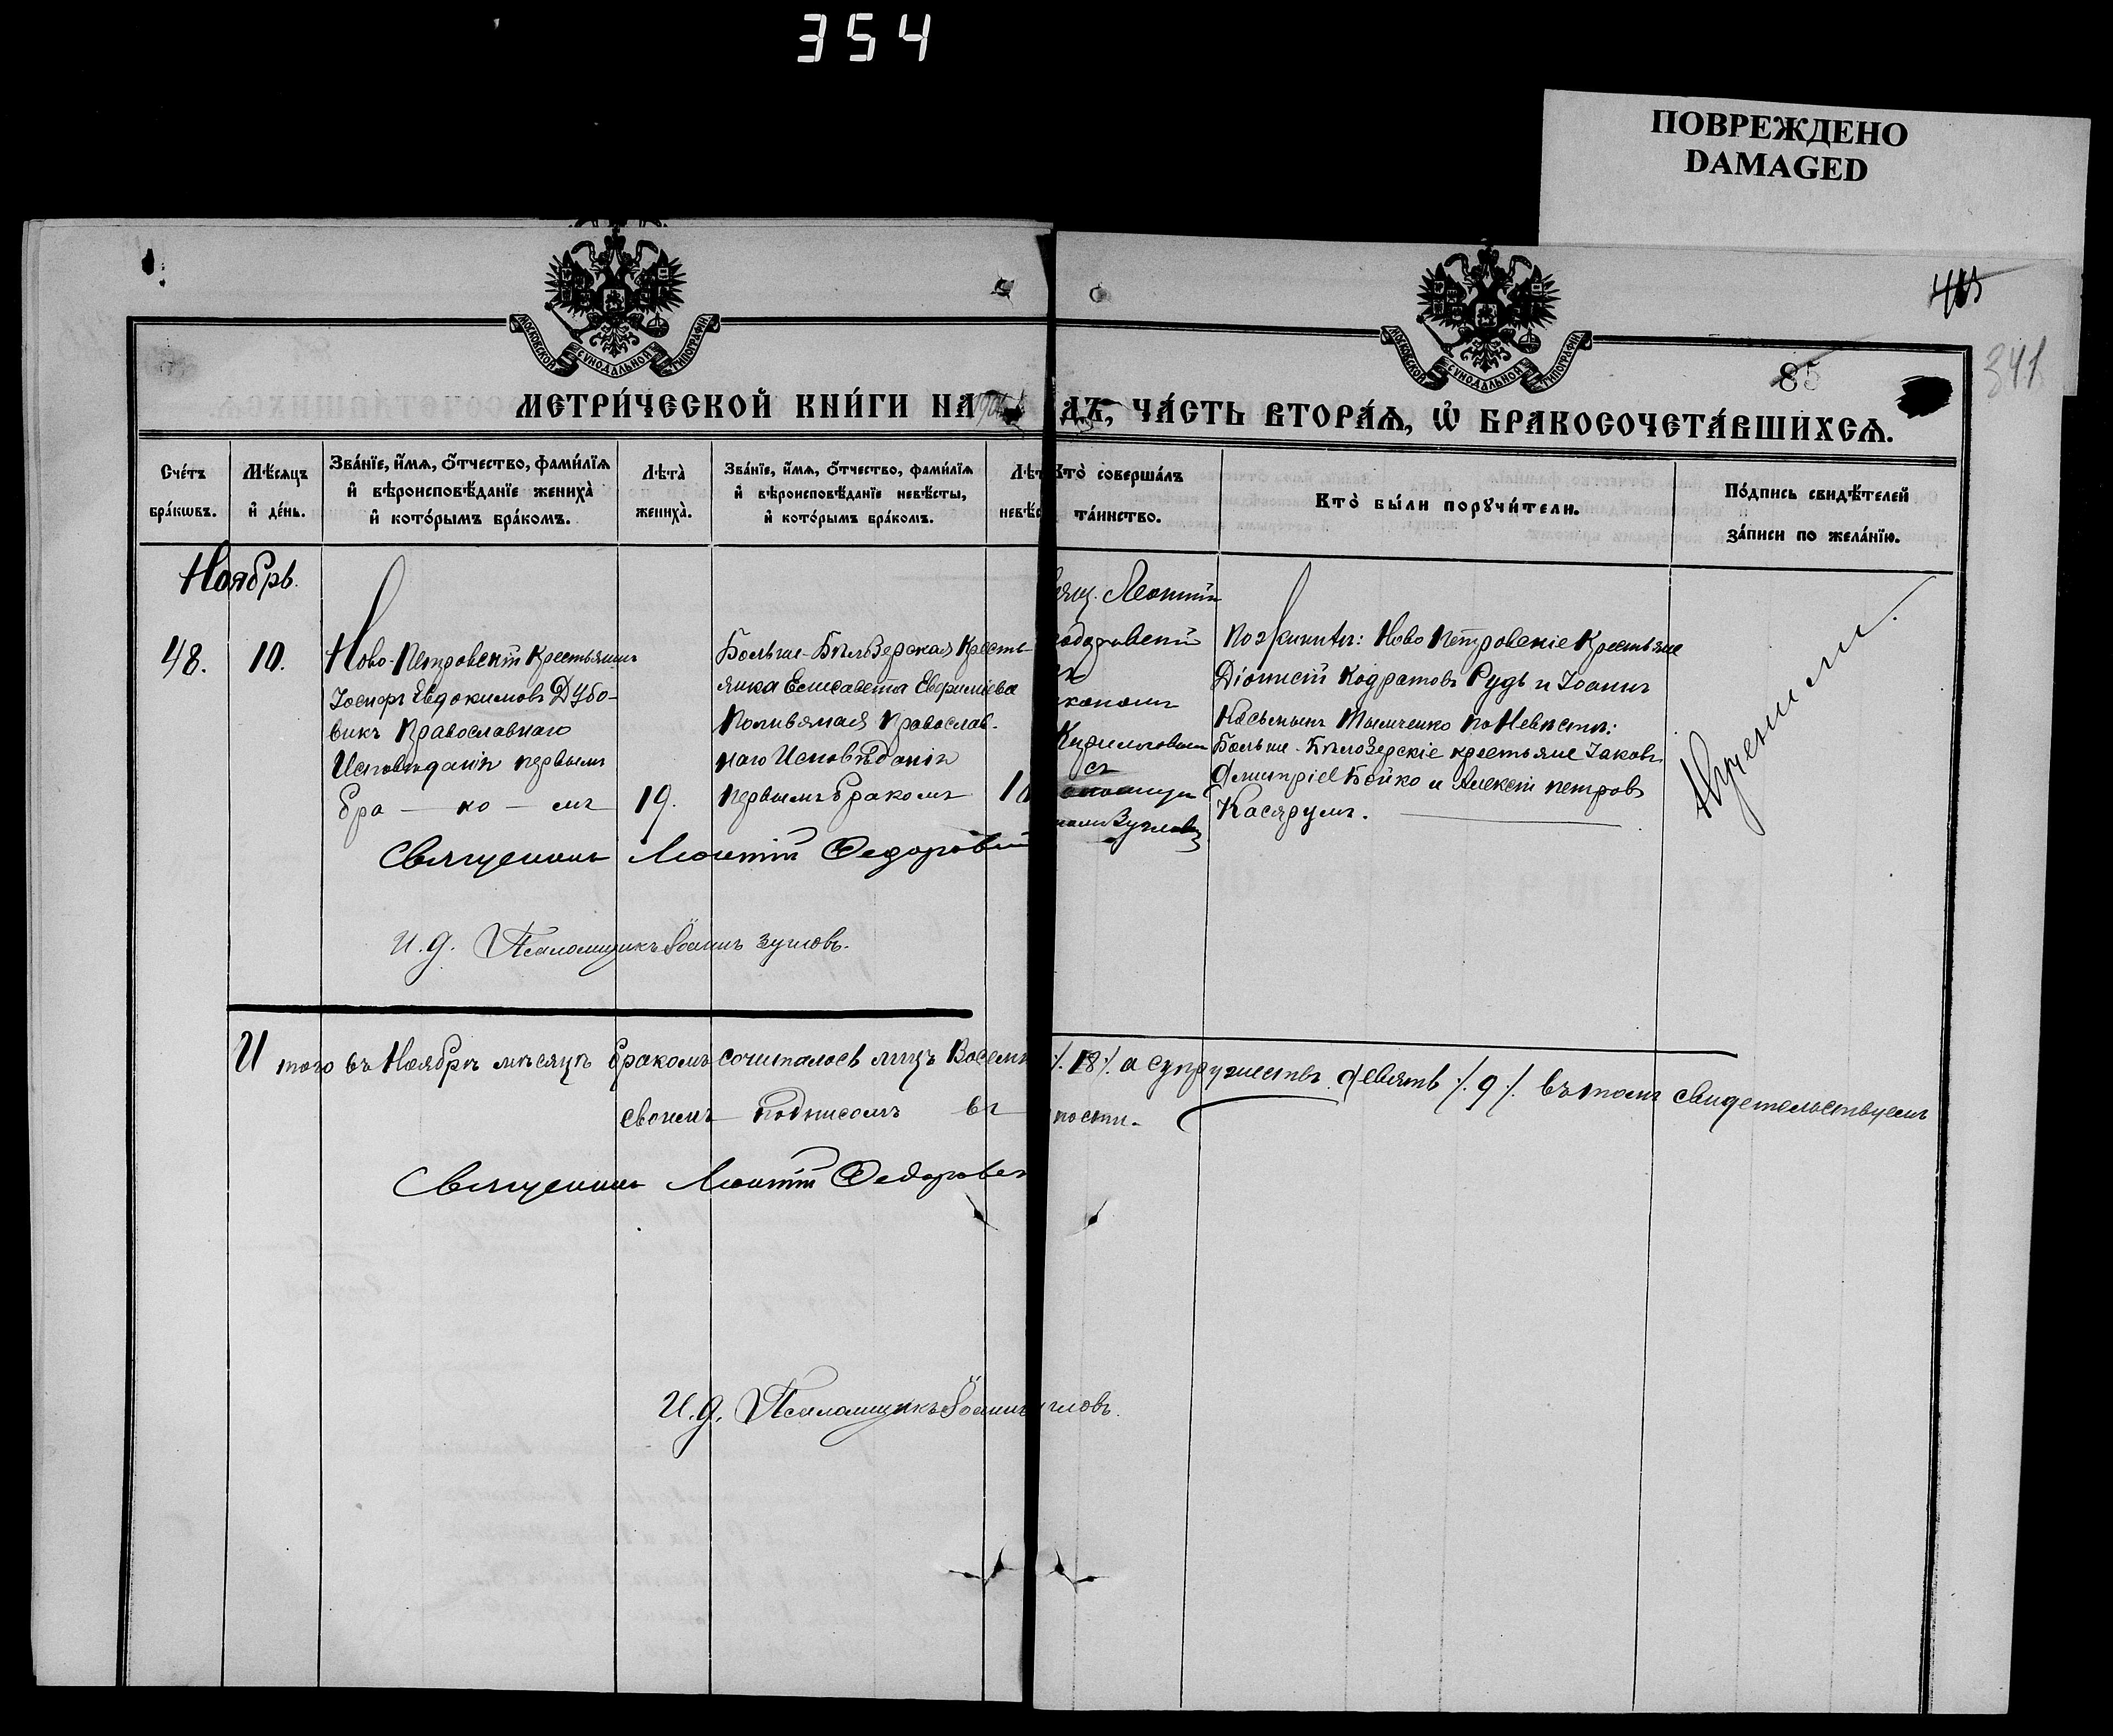 354
ПОВРЕЖДЕНО
DAMAGED
МОСКОВСКОЙ СУНОДАЛЬНОЙ ТИПОГРАФІИ
МОСКОВСКОЙ СУНОДАЛЬНОЙ ТИПОГРАФІИ
85
341
МЕТРИ́ЧЕСКОЙ КНИ́ГИ НА
ДЪ, ЧА́СТЬ ВТОРА́Ѧ, Ѽ БРАКОСОЧЕТА́ВШИХСѦ.
Сче́тъ бра́кѡвъ.
Мѣ́сяцъ и҆ де́нь.
Зва́нїе, и҆́мѧ, ѻ҆́тчество, фами́лїѧ и҆ вѣроисповѣ́данїе жениха̀ и҆ кото́рымъ бра́комъ.
Лѣта̀ жениха̀.
Зва́нїе, и҆́мѧ, ѻ҆́тчество, фами́лїѧ и҆ вѣроисповѣ́данїе невѣ́сты, и҆ кото́рымъ бра́комъ.
Лѣт
невѣ́с
Кто̀ соверша́лъ та́инство.
Кто̀ бы́ли порꙋчи́тели.
По́дпись свидѣ́телей за́писи по жела́нїю.
Ноябрь.
48.
10.
Ново-Петровскій Крестьянинъ
Іосифъ Евдокимовъ Дубо-
викъ Православнаго
Исповѣданія первымъ
бра — ко — мъ
19.
Больше-Бѣлозерская Кресть-
янка Елисавета Евфиміева
Поливяная Православ-
наго Исповѣданія
первымъ бракомъ
Леонтій
Кириловымъ
съ
По женихѣ: Ново Петровскіе Крестьяне
Діонисій Кодратовъ Рудь и Іоаннъ
Касьяынъ Тимченко по Невѣстѣ:
Больше-Бѣлозерскіе крестьяне Іаковъ
Дмитріев Бойко и Алексѣй петровъ
Касярумъ.
Священникъ Леонтій Федоровскій
И. д. Псаломщикъ Іоаннъ Зугловъ.
И того въ Ноябрѣ мѣсяцѣ бракомъ сочиталось лицъ Восемн
/. 18 ./ а супружествъ девять /. 9 ./ въ томъ свидетельствуемъ
своимъ подписомъ въ
ности.
Священникъ Леонтій Федоровск
И. д. Псаломщикъ Іоаннъ угловъ.